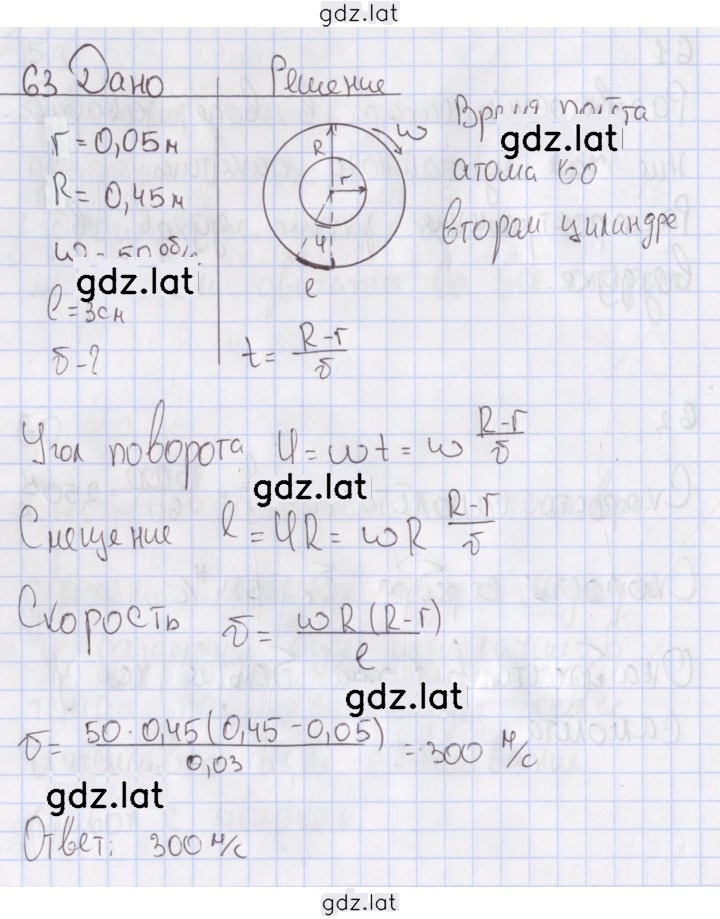 gdz.lat
63 Дано Решение
r = 0,05м
R = 0,45м
50 об/с
gdz.lat
l = 3см
υ - ?
R
r
ω
φ
l
Время
gdz.lat
атома
втором цилиндре
t = (R-r)/υ
Угол поворота φ = ωt = ω (R-r)/υ
gdz.lat
Смещение l = φR = ωR (R-r)/υ
Скорость υ = ωR(R-r)/l
gdz.lat
υ = 50·0,45(0,45-0,05)/0,03 = 300 м/с
gdz.lat
Ответ: 300 м/с
gdz.lat